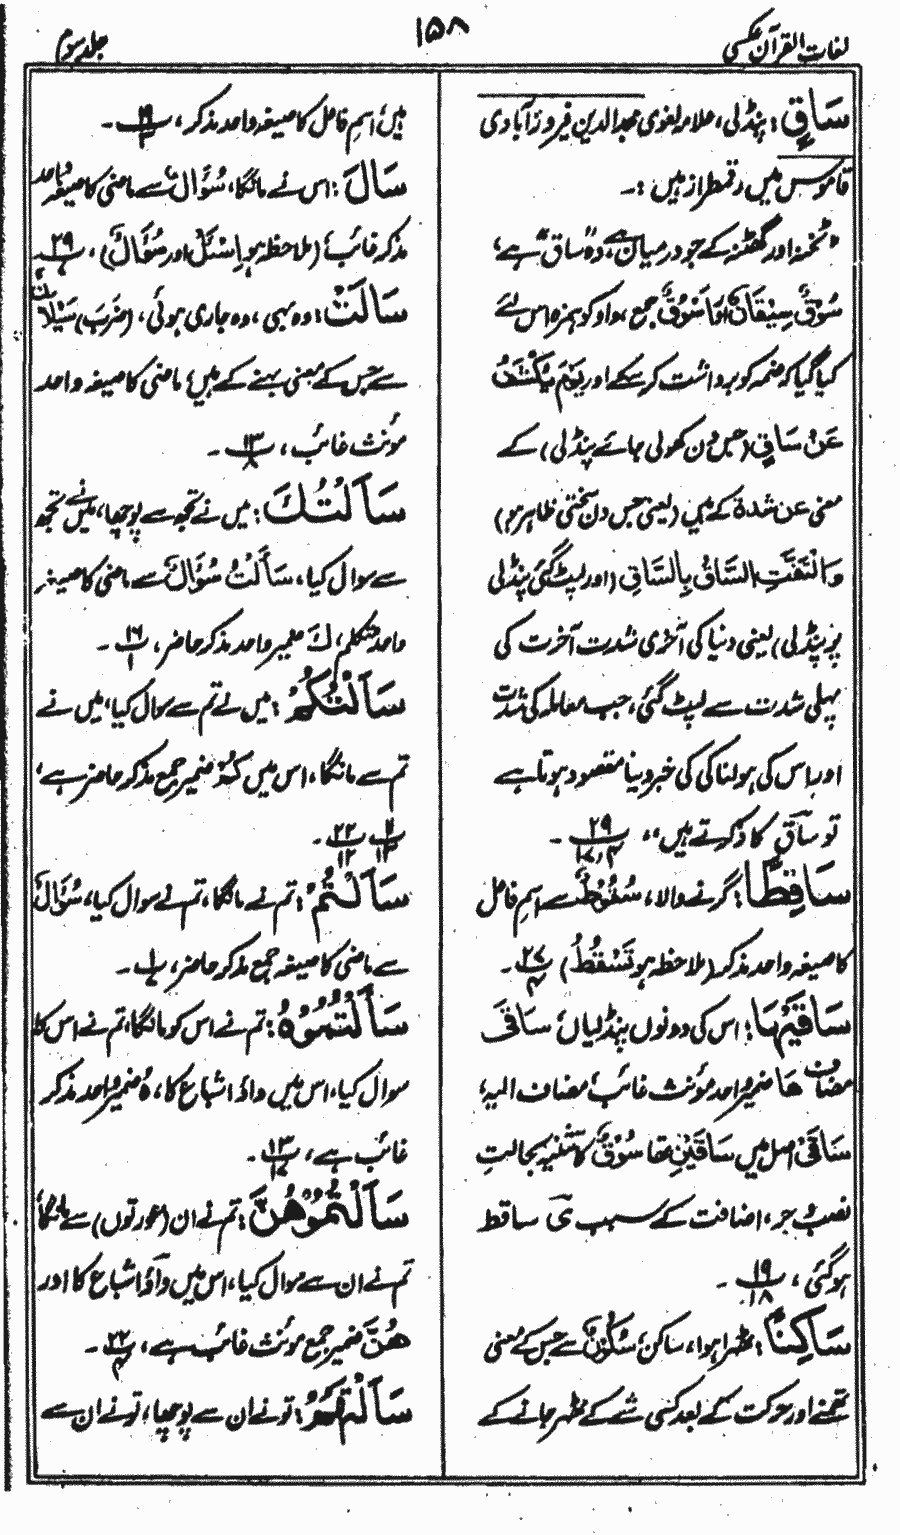 لغات القرآن عکسی
۱۵۸
جلد سوم
سَاقٍ: پنڈلی، علامہ لغوی مجد الدین فیروزآبادی
قاموس میں رقمطراز ہیں :۔
ٹخنہ اور گھٹنہ کے جو درمیان ہے، وہ "ساق" ہے،
سُوْقٌ سِیْقَانٌ اور اَسْوُقٌ جمع، واو کو ہمزہ اس لئے
کیا گیا کہ ضمہ کو برداشت کر سکے اور یَوْمَ یُکْشَفُ
عَنْ سَاقٍ (جس دن کھولی جائے پنڈلی) کے
معنی عن شدۃ کے ہیں (یعنی جس دن سختی ظاہر ہو)
وَالْتَفَّتِ السَّاقُ بِالسَّاقِ (اور لپٹ گئی پنڈلی
پر پنڈلی) یعنی دنیا کی آخری شدت آخرت کی
پہلی شدت سے لپٹ گئی، جب معاملہ کی شدت
اور اس کی ہولناکی کی خبر دینا مقصود ہوتا ہے
تو ساق کا ذکر کرتے ہیں،، ۲۹ ۔
سَاقِطًا: گرنے والا، سُقُوْطٌ سے اسم فاعل
کا صیغہ واحد مذکر (ملاحظہ ہو تَسْقُطُ) ۲۷/۴ ۔
سَاقَیْہَا: اس کی دونوں پنڈلیاں، سَاقَیْ
مضاف ھَا ضمیر واحد مؤنث غائب، مضاف الیہ،
سَاقَیْ اصل میں سَاقَیْنِ تھا سُوْقٌ کا تثنیہ بحالتِ
نصب و جر، اضافت کے سبب ن ساقط
ہو گئی، ۱۹/۱۸ ۔
سَاکِنًا: ٹھہرا ہوا، ساکن، سُکُوْنٌ سے جس کے معنی
تھمنے اور حرکت کے بعد کسی شے کے ٹھہر جانے کے
ہیں، اسم فاعل کا صیغہ واحد مذکر، ۱۹ ۔
سَاَلَ: اس نے مانگا، سُؤَالٌ سے ماضی کا صیغہ واحد
مذکر غائب، (ملاحظہ ہو اِسْئَلْ اور سُؤَالٌ)، ۲۹
سَالَتْ: وہ بہی، وہ جاری ہوئی، (ضَرَبَ) سَیْلَانٌ
سے جس کے معنی بہنے کے ہیں، ماضی کا صیغہ واحد
مؤنث غائب، ۱۳/۸ ۔
سَاَلْتُكَ: میں نے تجھ سے پوچھا، میں نے تجھ
سے سوال کیا، سَاَلْتُ سُؤَالٌ سے ماضی کا صیغہ
واحد متکلم، كَ ضمیر واحد مذکر حاضر، ۱۶/۱ ۔
سَاَلْتُكُمْ: میں نے تم سے سوال کیا، میں نے
تم سے مانگا، اس میں كُمْ ضمیر جمع مذکر حاضر ہے،
۱۱/۱۳ ۲۲/۱۲ ۔
سَاَلْتُمْ: تم نے مانگا، تم نے سوال کیا، سُؤَالٌ
سے ماضی کا صیغہ جمع مذکر حاضر، ۱ ۔
سَاَلْتُمُوْہُ: تم نے اس کو مانگا، تم نے اس کا
سوال کیا، اس میں واؤ اشباع کا، ہُ ضمیر واحد مذکر
غائب ہے، ۱۳/۱۷ ۔
سَاَلْتُمُوْھُنَّ: تم نے ان (عورتوں) سے مانگا
تم نے ان سے سوال کیا، اس میں واؤ اشباع کا اور
ھُنَّ ضمیر جمع مؤنث غائب ہے، ۲۲/۴ ۔
سَاَلْتَہُمْ: تو نے ان سے پوچھا، تو نے ان سے